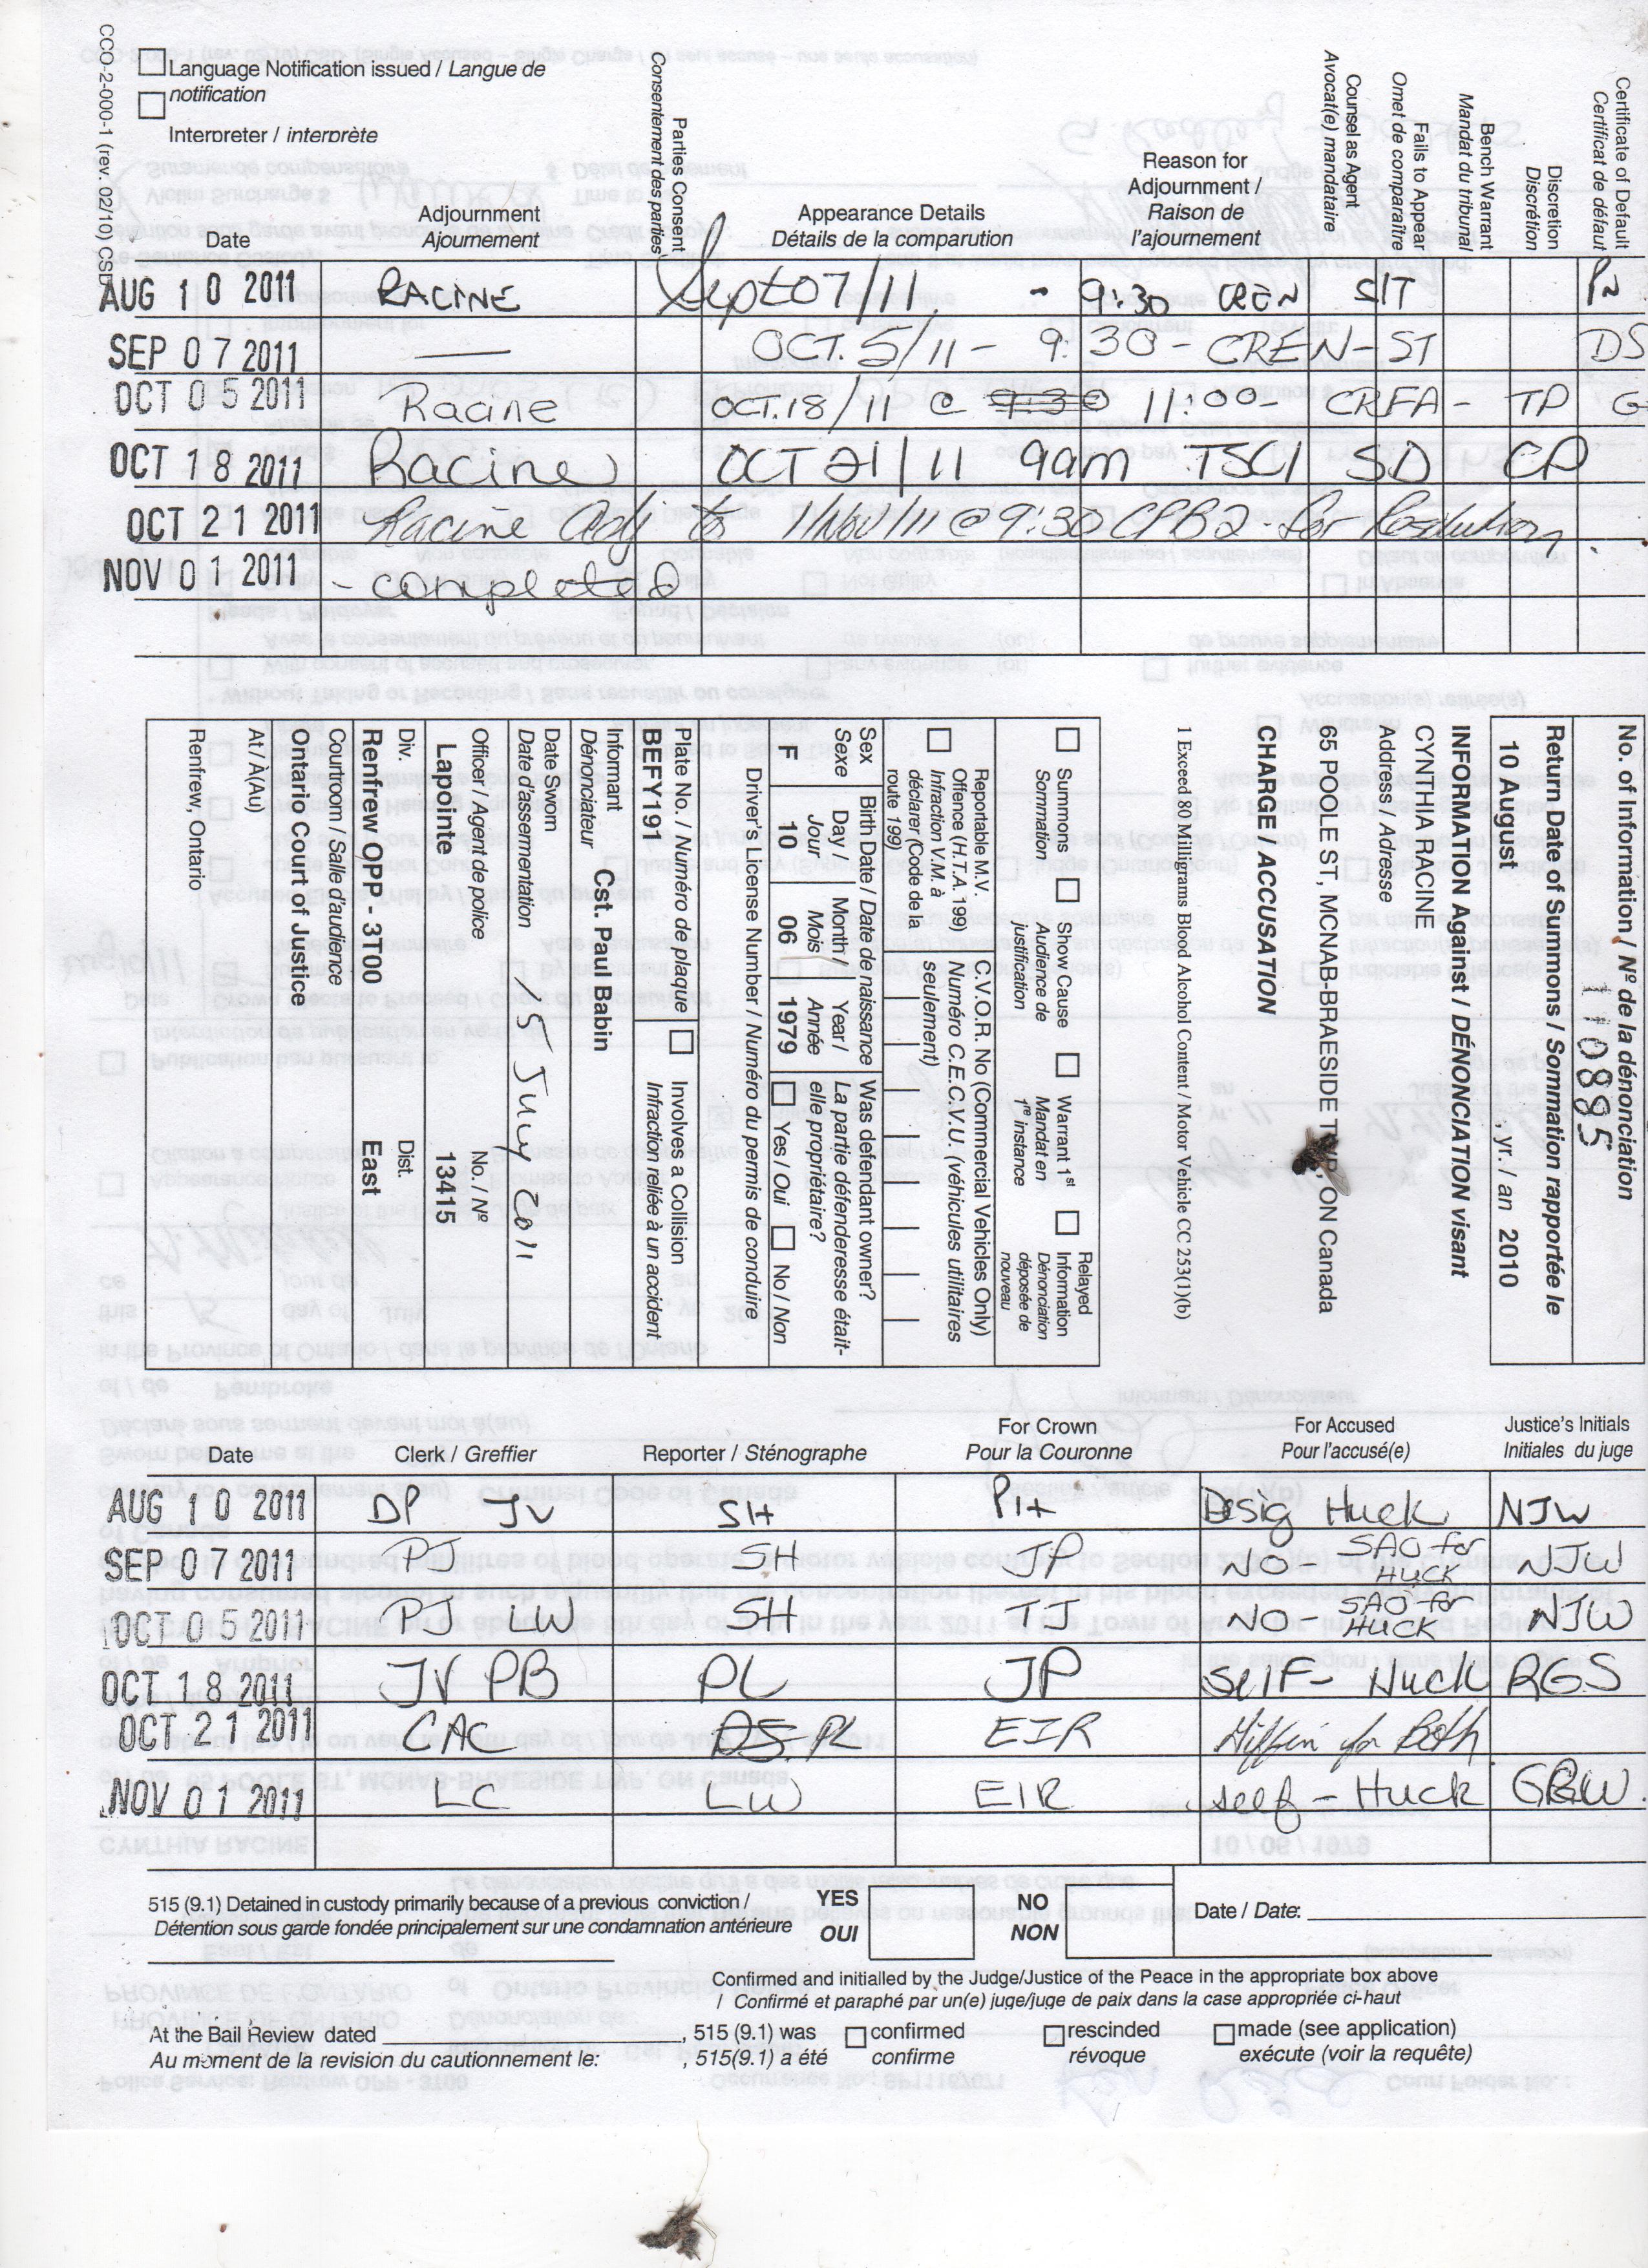 CCO-2-000-1 (rev. 02/10) CSD
Language Notification issued / Langue de
notification
Interpreter / interprète
Date
Adjournment
Ajournement
Parties Consent
Consentement des parties
Appearance Details
Détails de la comparution
Reason for
Adjournment /
Raison de
l'ajournement
Counsel as Agent
Avocat(e) mandataire
Fails to Appear
Omet de comparaître
Bench Warrant
Mandat du tribunal
Discretion
Discrétion
Certificate of Default
Certificat de défaut
AUG 10 2011 RACINE Sept 07/11 - 9:30
SEP 07 2011 — OCT. 5/11 - 9:30 - CREN-ST DS
OCT 05 2011 Racine OCT. 18/11 @ 9:30 11:00 - CRFA - TP G
OCT 18 2011 Racine OCT 21/11 9am
OCT 21 2011 Racine Adj to 1 Nov/11 @ 9:30 - for Resolution.
NOV 01 2011 - completed
No. of Information / Nº de la dénonciation
110885
Return Date of Summons / Sommation rapportée le
10 August , yr. / an 2010
INFORMATION Against / DÉNONCIATION visant
CYNTHIA RACINE
Address / Adresse
65 POOLE ST, MCNAB-BRAESIDE ON Canada
CHARGE ACCUSATION
1 Exceed 80 Milligrams Blood Alcohol Content / Motor Vehicle CC 253(1)(b)
Summons
Sommation
Show Cause
Audience de
justification
Warrant 1st
Mandat en
1re instance
Relayed
Information
Dénonciation
déposée de
nouveau
Reportable M.V.
Offence (H.T.A. 199)
Infraction V.M. à
déclarer (Code de la
route 199)
C.V.O.R. No (Commercial Vehicles Only)
Numéro C.E.C.V.U. (véhicules utilitaires
seulement)
Sex
Sexe
F
Birth Date / Date de naissance
Day / Jour Month / Mois Year / Année
10 06 1979
Was defendant owner?
La partie défenderesse était-
elle propriétaire?
Yes / Oui No / Non
Driver's License Number / Numéro du permis de conduire
Plate No. / Numéro de plaque
BEFY191
Involves a Collision
Infraction reliée à un accident
Informant
Dénonciateur
Cst. Paul Babin
Date Sworn
Date d'assermentation
15 July 2011
Officer / Agent de police
Lapointe
No. / Nº
13415
Div.
Renfrew OPP - 3T00
Dist.
East
Courtroom / Salle d'audience
Ontario Court of Justice
At / À(Au)
Renfrew, Ontario
Date
Clerk / Greffier
Reporter / Sténographe
For Crown
Pour la Couronne
For Accused
Pour l'accusé(e)
Justice's Initials
Initiales du juge
AUG 10 2011 DP JV SH PH Desig Huck NJW
SEP 07 2011 PJ SH JP NO - SAO for HUCK NJW
OCT 05 2011 PJ SH NO - SAO for HUCK NJW
OCT 18 2011 JV PB PL JP SELF - Huck RGS
OCT 21 2011 CAC DS PL EIR for Both
NOV 01 2011 LC LW EIR self - Huck GBW
515 (9.1) Detained in custody primarily because of a previous conviction /
Détention sous garde fondée principalement sur une condamnation antérieure
YES
OUI
NO
NON
Date / Date:
Confirmed and initialled by the Judge/Justice of the Peace in the appropriate box above
/ Confirmé et paraphé par un(e) juge/juge de paix dans la case appropriée ci-haut
At the Bail Review dated , 515 (9.1) was
Au moment de la revision du cautionnement le: , 515(9.1) a été
confirmed
confirme
rescinded
révoque
made (see application)
exécute (voir la requête)